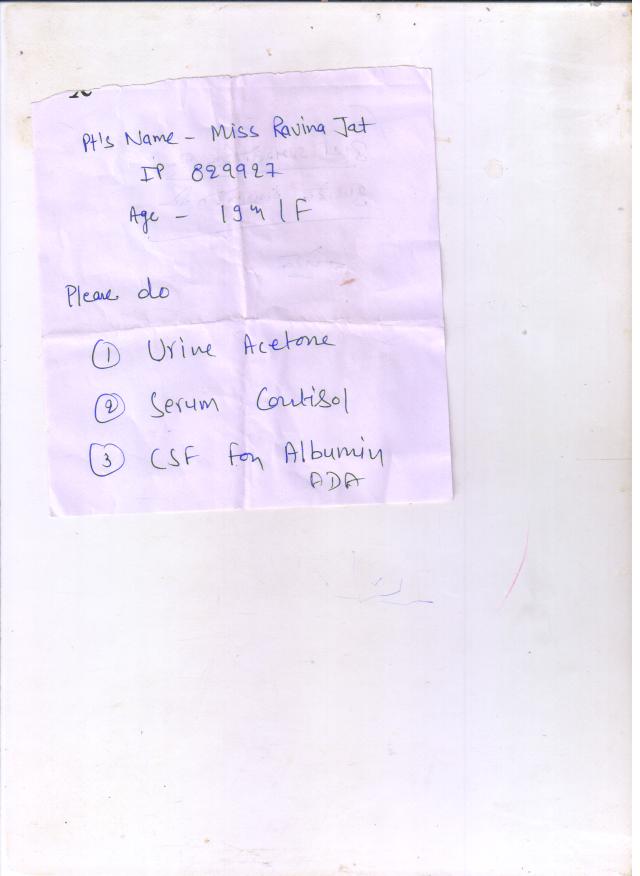 Pt's Name - Miss Ravina Jat
IP 829927
Age - 19 m / F
Please do
① Urine Acetone
② Serum Cortisol
③ CSF for Albumin
ADA